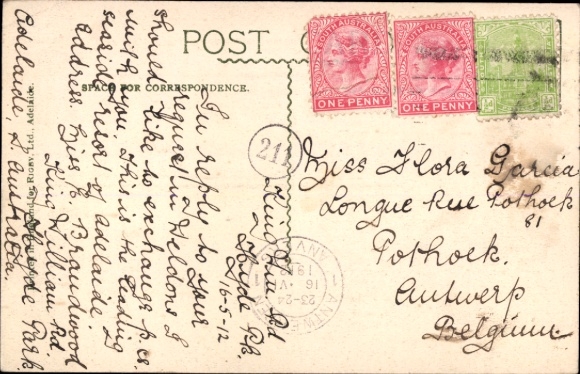 POST C
SPACE FOR CORRESPONDENCE.
SOUTH AUSTRALIA
ONE PENNY
SOUTH AUSTRALIA
ONE PENNY
½ D
211
King Wm Rd
Hyde Pk
16-5-12
In reply to your
request in Weldons I
should like to exchange p. cs.
with you, this is the leading
seaside resort of adelaide.
address Miss E Brandwood
King William Rd.
Hyde Park
Adelaide, S. Australia.
Miss Flora Garcia
Longue Rue Pothoek
81
Pothoek.
Antwerp
Belgium.
1 ANTWE
23-24
16 VI
1912
1 ANVE
Rigby, Ltd., Adelaide.